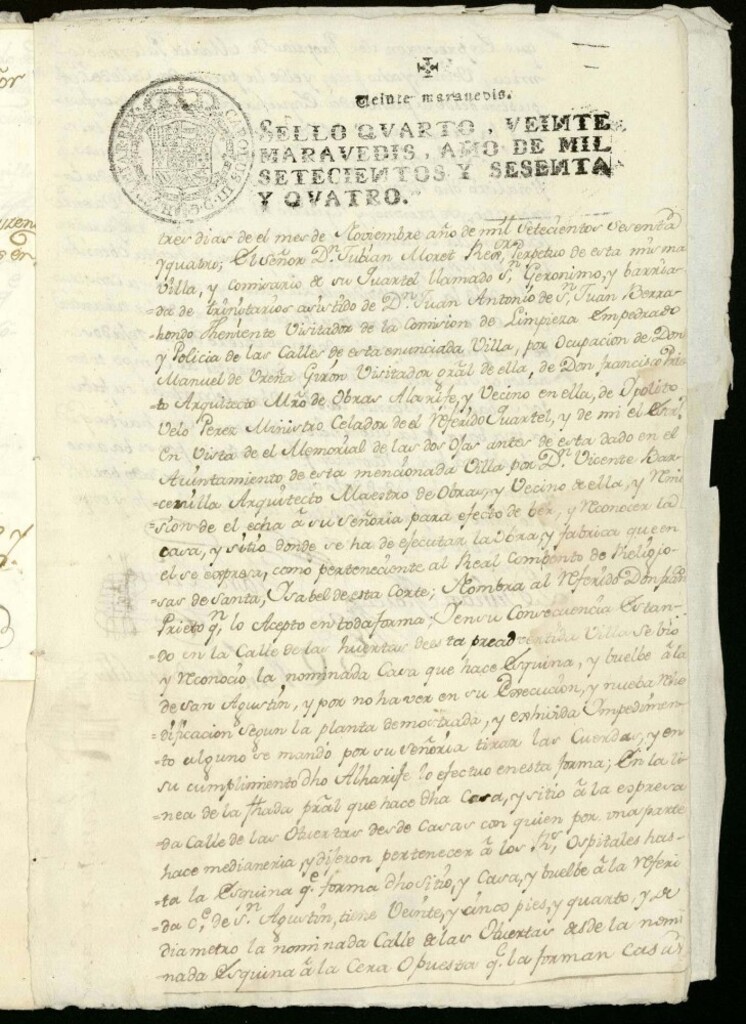 Veinte maravedis.
SELLO QVARTO, VEINTE
MARAVEDIS, AÑO DE MIL
SETECIENTOS Y SESENTA
Y QVATRO.
CAROLUS III D G HISPANIAR REX
tres dias de el mes de Noviembre año de mil setecientos sesenta
y quatro; El Señor Dn. Julian Moret Rexor. Perpetuo de esta misma
Villa, y Comisario de su Quartel llamado Sn. Geronimo, y barria-
=da de trinitarios asistido de Dn. Juan Antonio de Sn. Juan Berra-
=hondo Theniente Visitador de la Comision de Limpieza Empedrado
y Policia de las Calles de esta enunciada Villa, por Ocupacion de Don
Manuel de Ureña Giron Visitador gral de ella, de Don francisco Prie
to Arquitecto Mro de Obras Alarife, y Vecino en ella, de Ypolito
Velo Perez Ministro Celador de el referido Quartel, y de mi el Essno
En Vista de el Memorial de las dos ojas antes de esta dado en el
=Aiuntamiento de esta mencionada Villa por Dn. Vicente Bar-
=cenilla Arquitecto Maestro de Obras, y Vecino de ella, y remi
=sion de el echa â su señoria para efecto de ber, y reconocer la
casa, y sitio donde se ha de efecutar la obra, y fabrica que en
el se expresa, como perteneciente al Real Combento de Religio-
=sas de santa, Ysabel de esta Corte; Nombra al referido Don fran
Prieto qn. lo Acepto en toda forma; Y en su Consecuencia Estan-
do en la Calle de las huertas de esta preadvertida Villa se bio
y reconocio la nominada Casa que hace Esquina, y buelbe â la
de san Agustin, y por no haver en su Execucion, y nueba rehe
=dificacion segun la planta demostrada, y exhivida Ympedimen-
to alguno se mandò por su señoria tirar las Cuerdas, y en
su cumplimiento dho Alharife lo efectuo en esta forma; En la li
=nea de la fhada pral que hace dha Casa, y sitio â la expresa
=da Calle de las Huertas desde Casas con quien por una parte
hace medianeria, y dijeron pertenecer â los Rs. Ospitales has-
=ta la Esquina qe. forma dho sitio, y Casa, y buelbe â la referi
da Ce. de Sn. Agustin, tiene Veinte, y cinco pies, y quarto, y de
diametro la nominada Calle de las Huertas desde la nomi
nada Esquina â la Cera Opuesta qe. la forman Casas